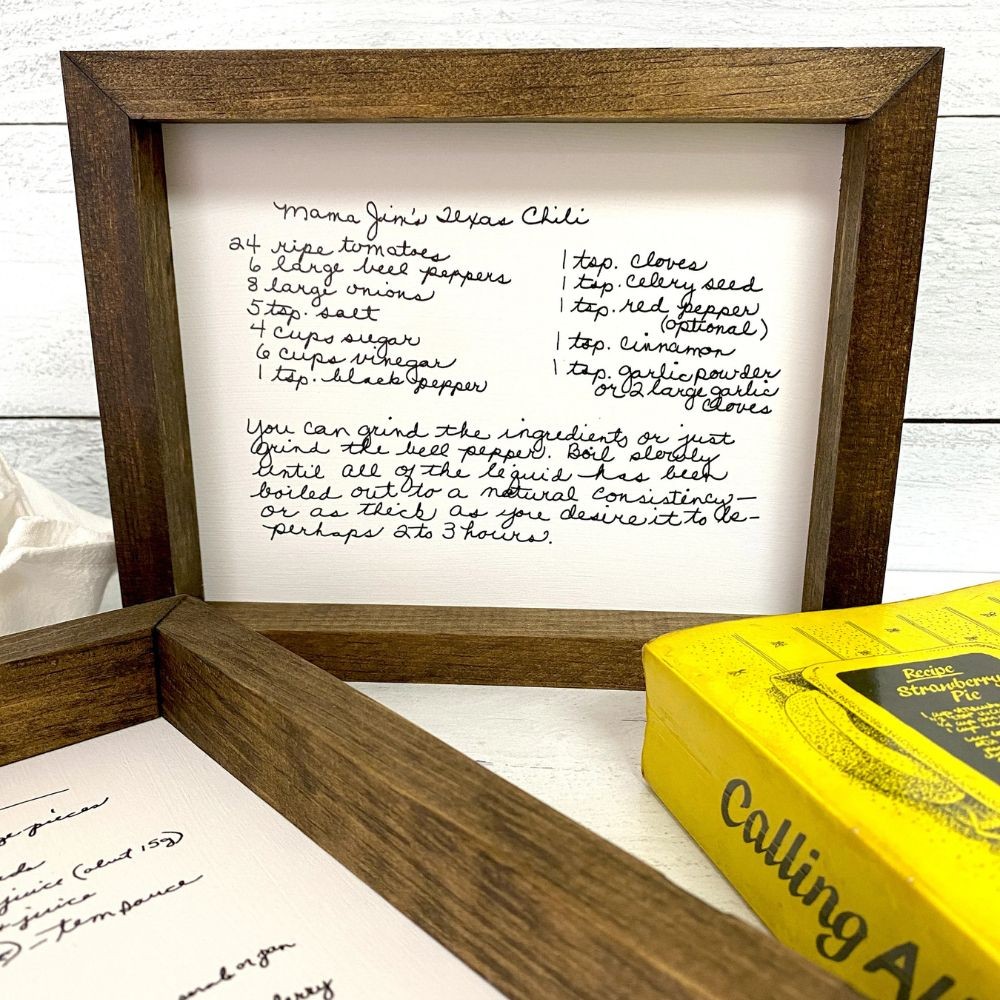 Mama Jim's Texas Chili
24 ripe tomatoes
6 large bell peppers
8 large onions
5 tsp. salt
4 cups sugar
6 cups vinegar
1 tsp. black pepper
1 tsp. cloves
1 tsp. celery seed
1 tsp. red pepper
(optional)
1 tsp. cinnamon
1 tsp. garlic powder
or 2 large garlic
cloves
You can grind the ingredients or just
grind the bell pepper. Boil slowly
until all of the liquid has been
boiled out to a natural consistency—
or as thick as you desire it to be—
perhaps 2 to 3 hours.
pieces
juice (about 15g)
juice
sauce
Recipe
Strawberry
Pie
Calling